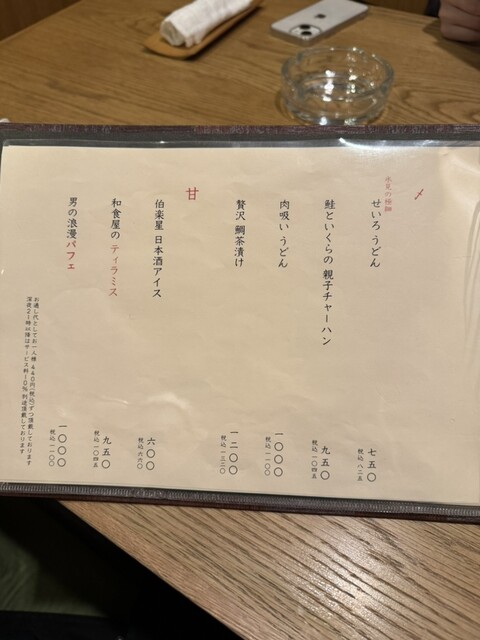 〆
氷見の極細
せいろ うどん
七五〇
税込 八二五
鮭といくらの 親子チャーハン
九五〇
税込一〇四五
肉吸い うどん
一〇〇〇
税込一一〇〇
贅沢 鯛茶漬け
一二〇〇
税込一三二〇
甘
伯楽星 日本酒アイス
六〇〇
税込六六〇
和食屋の ティラミス
九五〇
税込一〇四五
男の浪漫パフェ
一〇〇〇
税込一一〇〇
お通し代としてお一人様 440円(税込)ずつ頂戴しております
深夜21時以降はサービス料10%別途頂戴しております